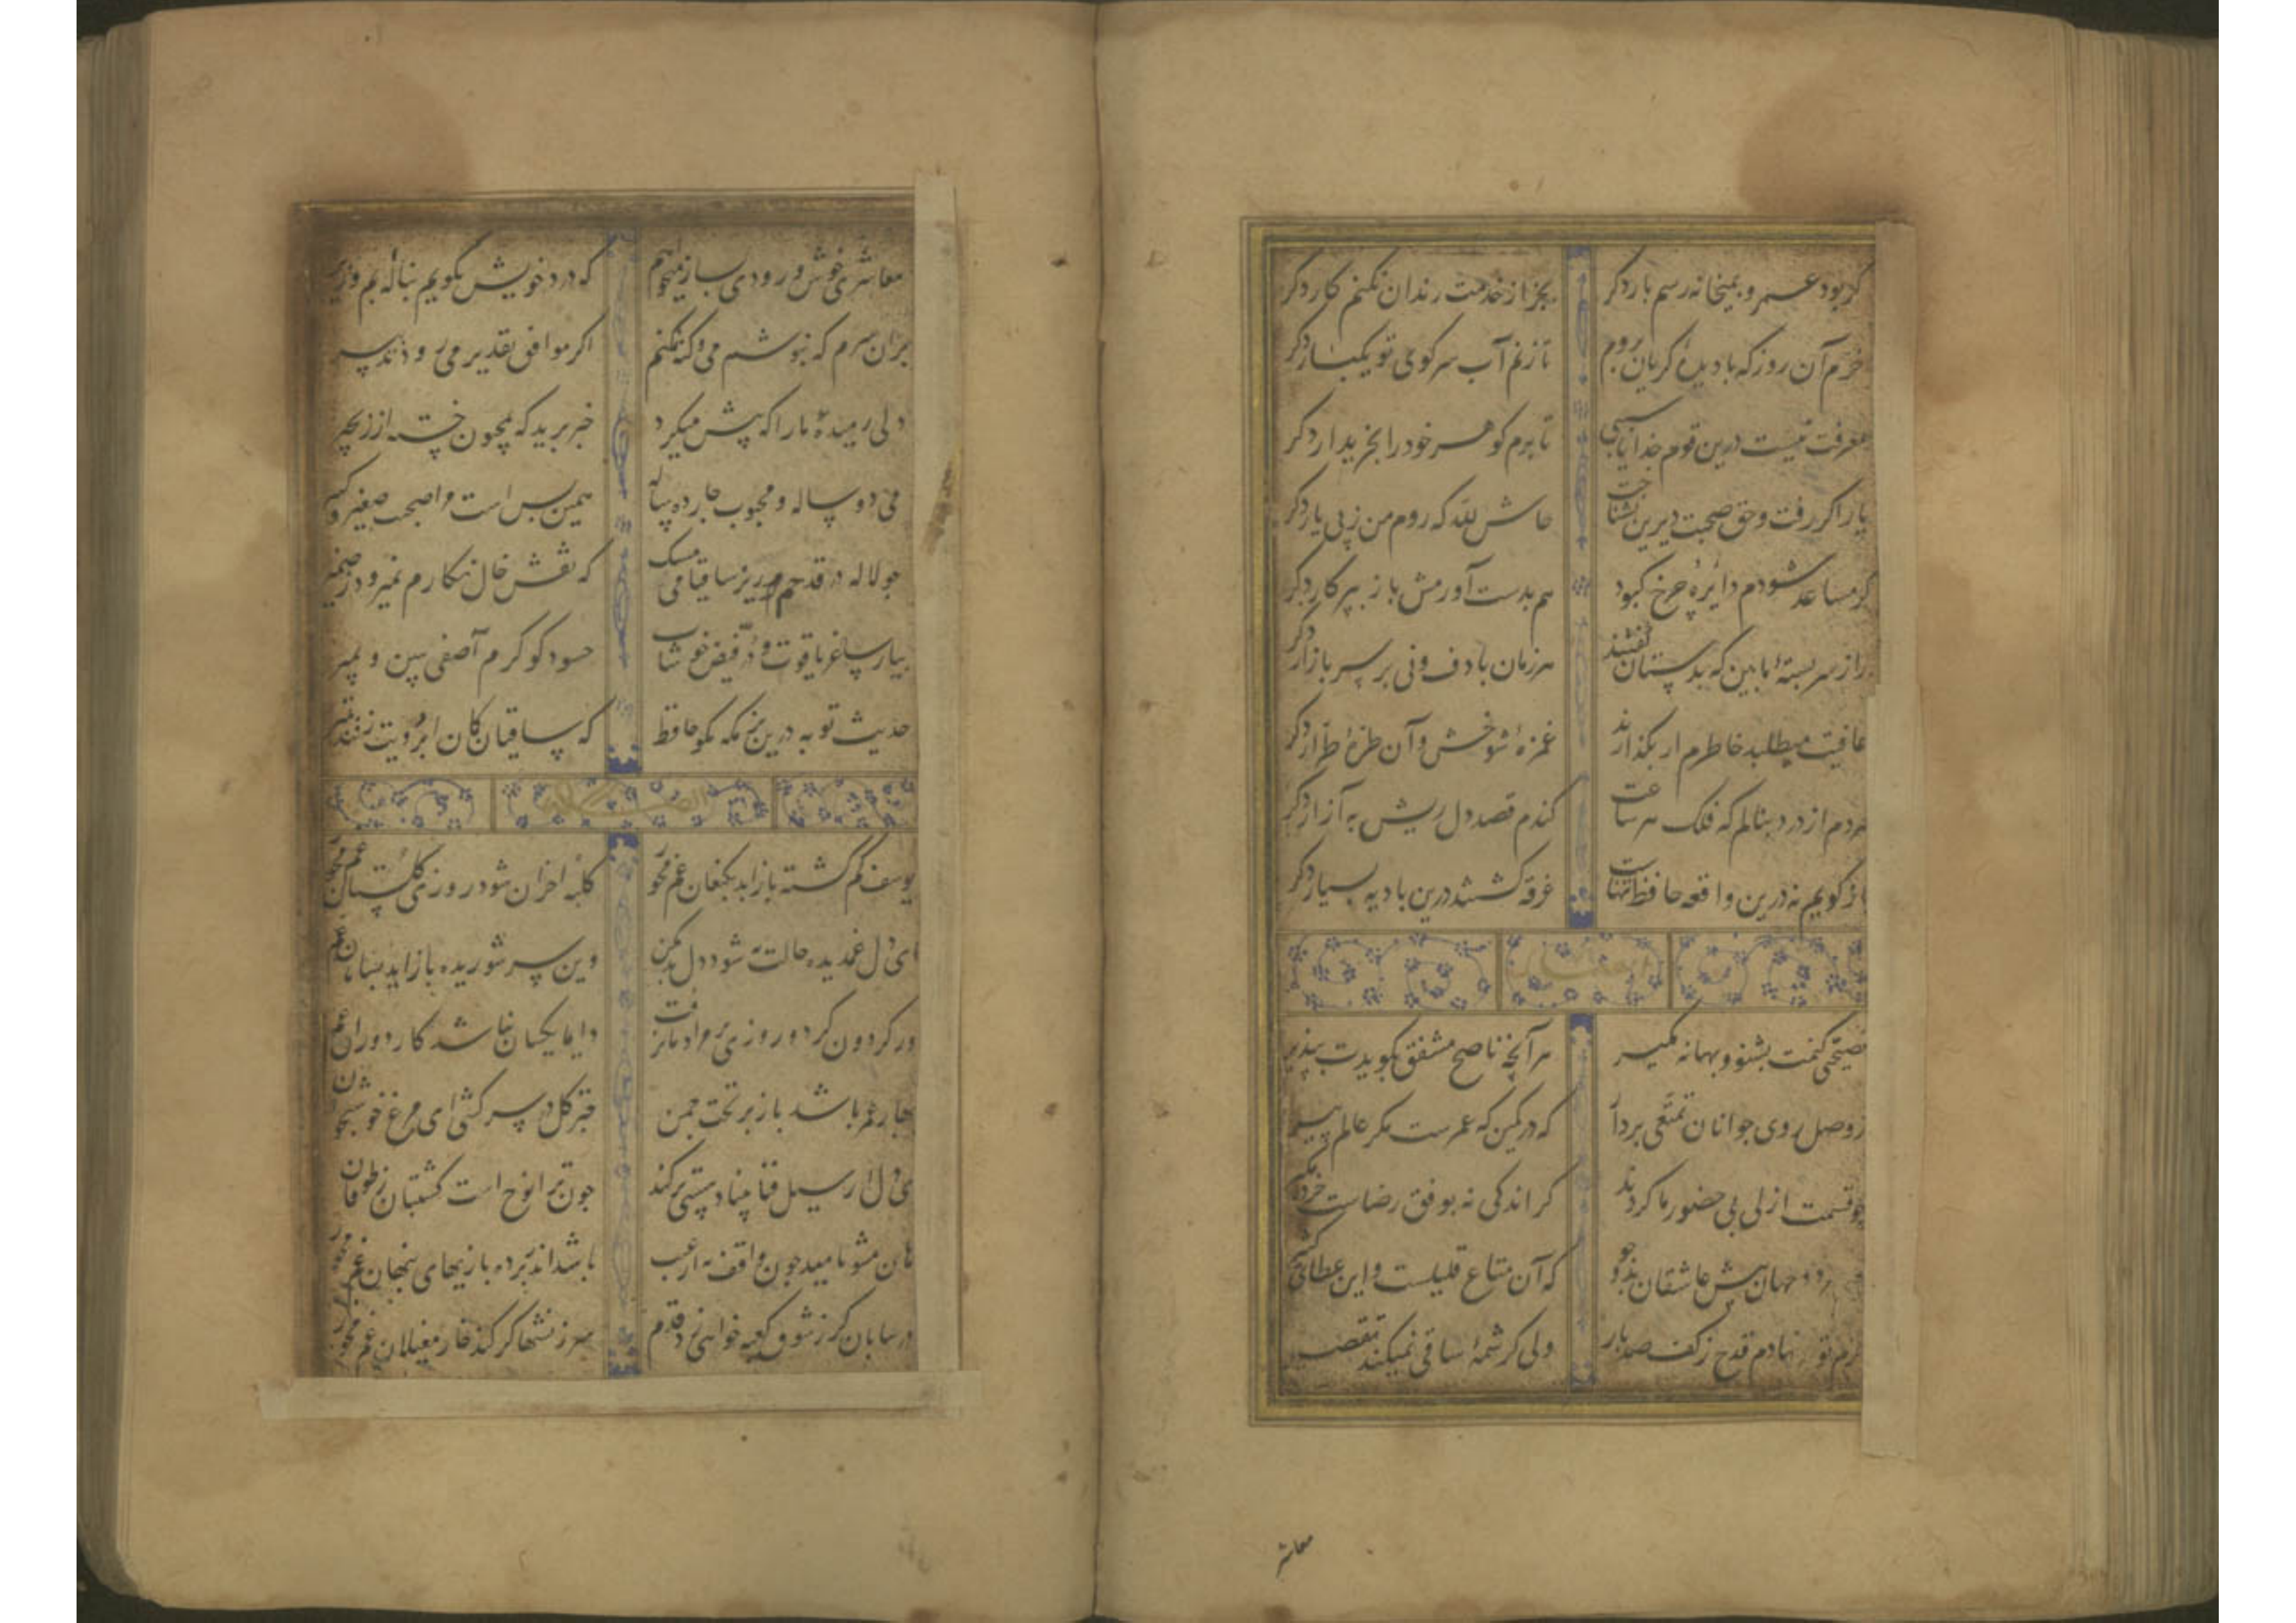 گر بود عمر و بمیخانه رسم بار دکر بجز از خدمت رندان نکنم کار دکر
خرم آن روز که با دیدهٔ گریان بروم تا زنم آب سر کوی تو یکبار دکر
معرفت نیست درین قوم خدایا سببی تا برم کوهر خود را بخریدار دکر
یار اکر رفت و حق صحبت دیرین نشناخت حاش لله که روم من ز پی یار دکر
کر مساعد شودم دایرهٔ چرخ کبود هم بدست آورمش باز بپرکار دکر
راز سربستهٔ ما بین که بدستان کفتند هر زمان با دف و نی بر سر بازار دکر
عافیت میطلبد خاطرم ار بکذارند غمزهٔ شوخش و آن طرهٔ طرار دکر
هر دم از درد بنالم که فلک هر ساعت کندم قصد دل ریش به آزار دکر
باز کویم نه درین واقعه حافظ تنهاست غرقه کشتند درین بادیه بسیار دکر
نصیحتی کنمت بشنو و بهانه مکیر هر آنچه ناصح مشفق بکویدت بپذیر
ز وصل روی جوانان تمتعی بردار که در کمین که عمرست مکر عالم پیر
چو قسمت ازلی بی حضور ما کردند کر اندکی نه بوفق رضاست خرده مکیر
دو جهان پیش عاشقان بدو جو که آن متاع قلیلست و این عطای کثیر
نهادم قدح ز کف صد بار ولی کرشمهٔ ساقی نمیکند تقصیر
معاشر
معاشری خوش و رودی بساز میخواهم که درد خویش بکویم بنالهٔ بم و زیر
بران سرم که ننوشم می و کنه نکنم اکر موافق تقدیر می رود تدبیر
دلی رمیدهٔ ما را که پیش میکیرد خبر برید که مجنون خسته از زنجیر
می دو ساله و محبوب چارده ساله همین بس است مرا صحبت صغیر و کبیر
چو لاله در قدحم ریز ساقیا می مشک که نقش خال نکارم نمیرود ز ضمیر
بیار ساغر یاقوت و در فیض خوشاب حسود کو کرم آصفی ببین و بمیر
حدیث توبه درین بزمکه مکو حافظ که ساقیان کمان ابرویت زنند بتیر
یوسف کم کشته باز اید بکنعان غم مخور کلبه احزان شود روزی کلستان غم مخور
ای دل غمدیده حالت به شود دل بد مکن وین سر شوریده باز اید بسامان غم
دور کردون کر دو روزی بر مراد ما نرفت دایما یکسان نباشد کار دوران غم
بهار عمر باشد باز بر تخت چمن چتر کل در سر کشی ای مرغ خوشخوان
ای دل ار سیل فنا بنیاد هستی بر کند چون ترا نوح است کشتیبان ز طوفان
هان مشو نامید چون واقف نه از غیب باشد اندر پرده بازیهای پنهان غم مخور
در بیابان کر ز شوق کعبه خواهی زد قدم سرزنشها کر کند خار مغیلان غم مخور